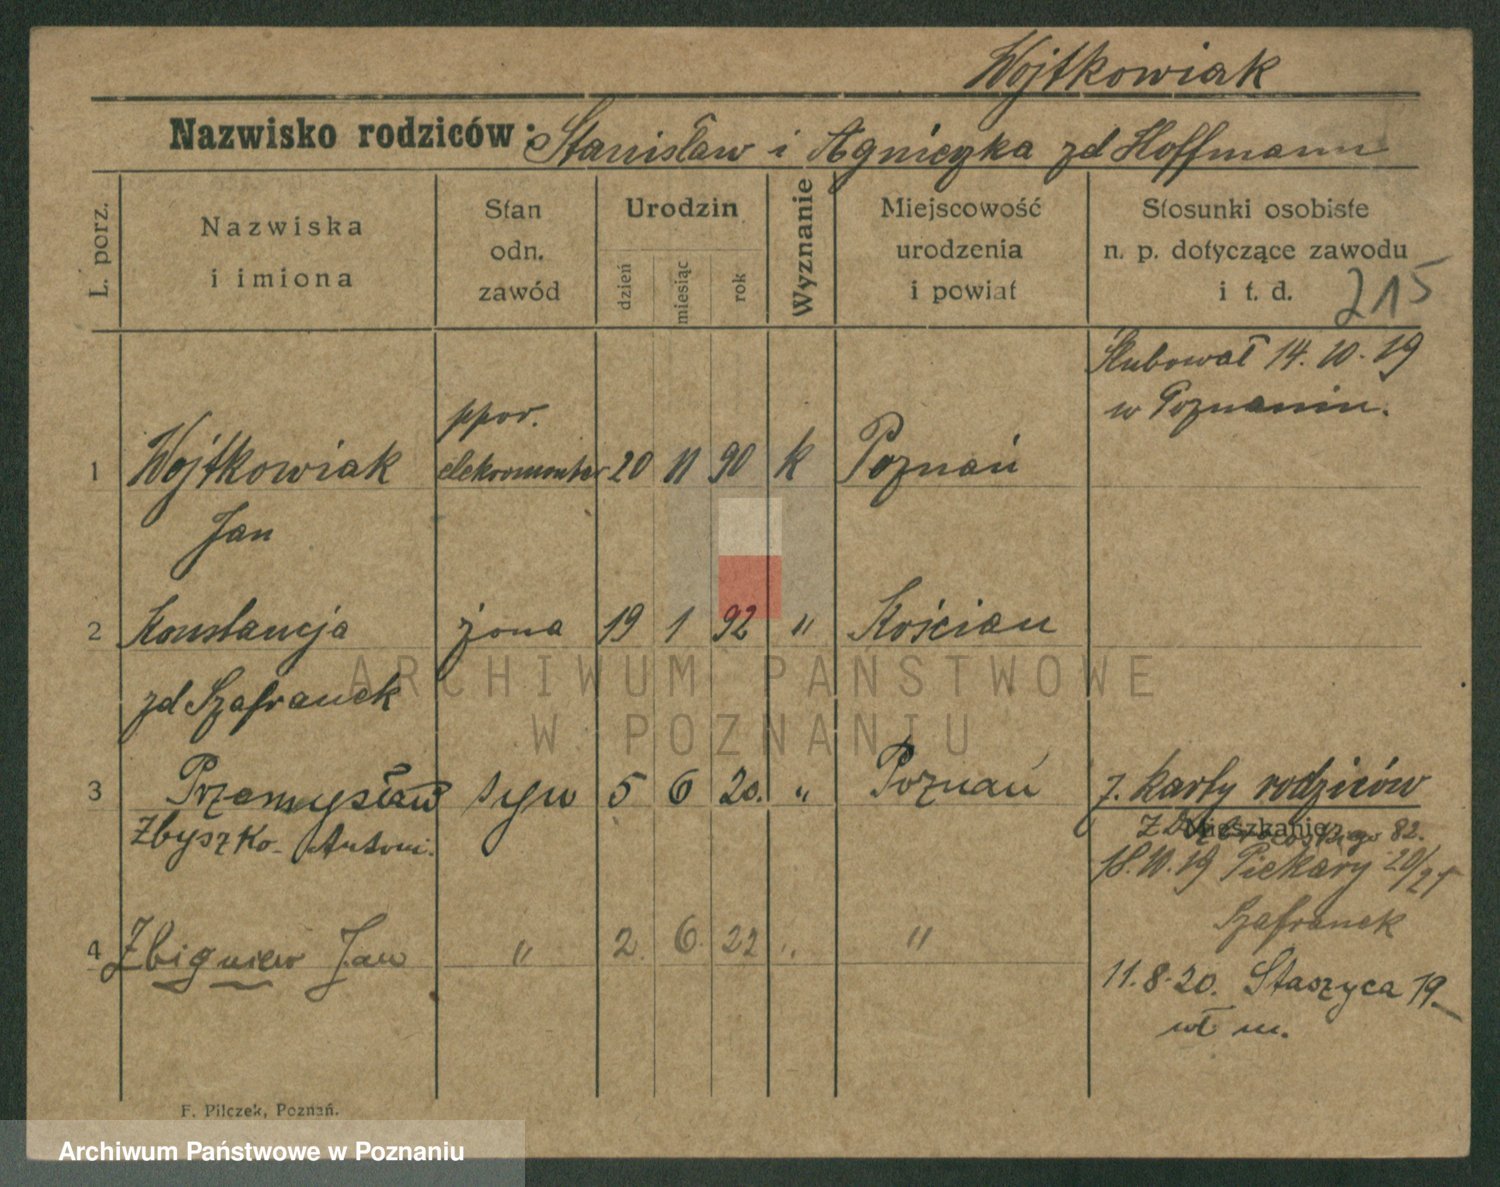 Wojtkowiak
Nazwisko rodziców: Stanisław i Agnieszka zd Hoffmann
L. porz.
Nazwiska
i imiona
Stan
odn.
zawód
Urodzin
dzień
miesiąc
rok
Wyznanie
Miejscowość
urodzenia
i powiat
Stosunki osobiste
n. p. dotyczące zawodu
i t. d.
215
Ślubował 14. 10. 19
w Poznaniu.
ppor.
1 Wojtkowiak elekromonter 20 11 90 k Poznań
Jan
2 Konstancja żona 19 1 92 " Kościan
zd Szafranek
ARCHIWUM PAŃSTWOWE
W POZNANIU
3 Przemysław syn 5 6 20. " Poznań z. karty rodziców
Zbyszko- Antoni.
Mieszkanie: 82.
18.10.19 Piekary 20/21
Szafranek
4 Zbigniew Jan " 2. 6. 22 " "
11. 8. 20. Staszyca 19.
wł m.
F. Pilczek, Poznań.
Archiwum Państwowe w Poznaniu